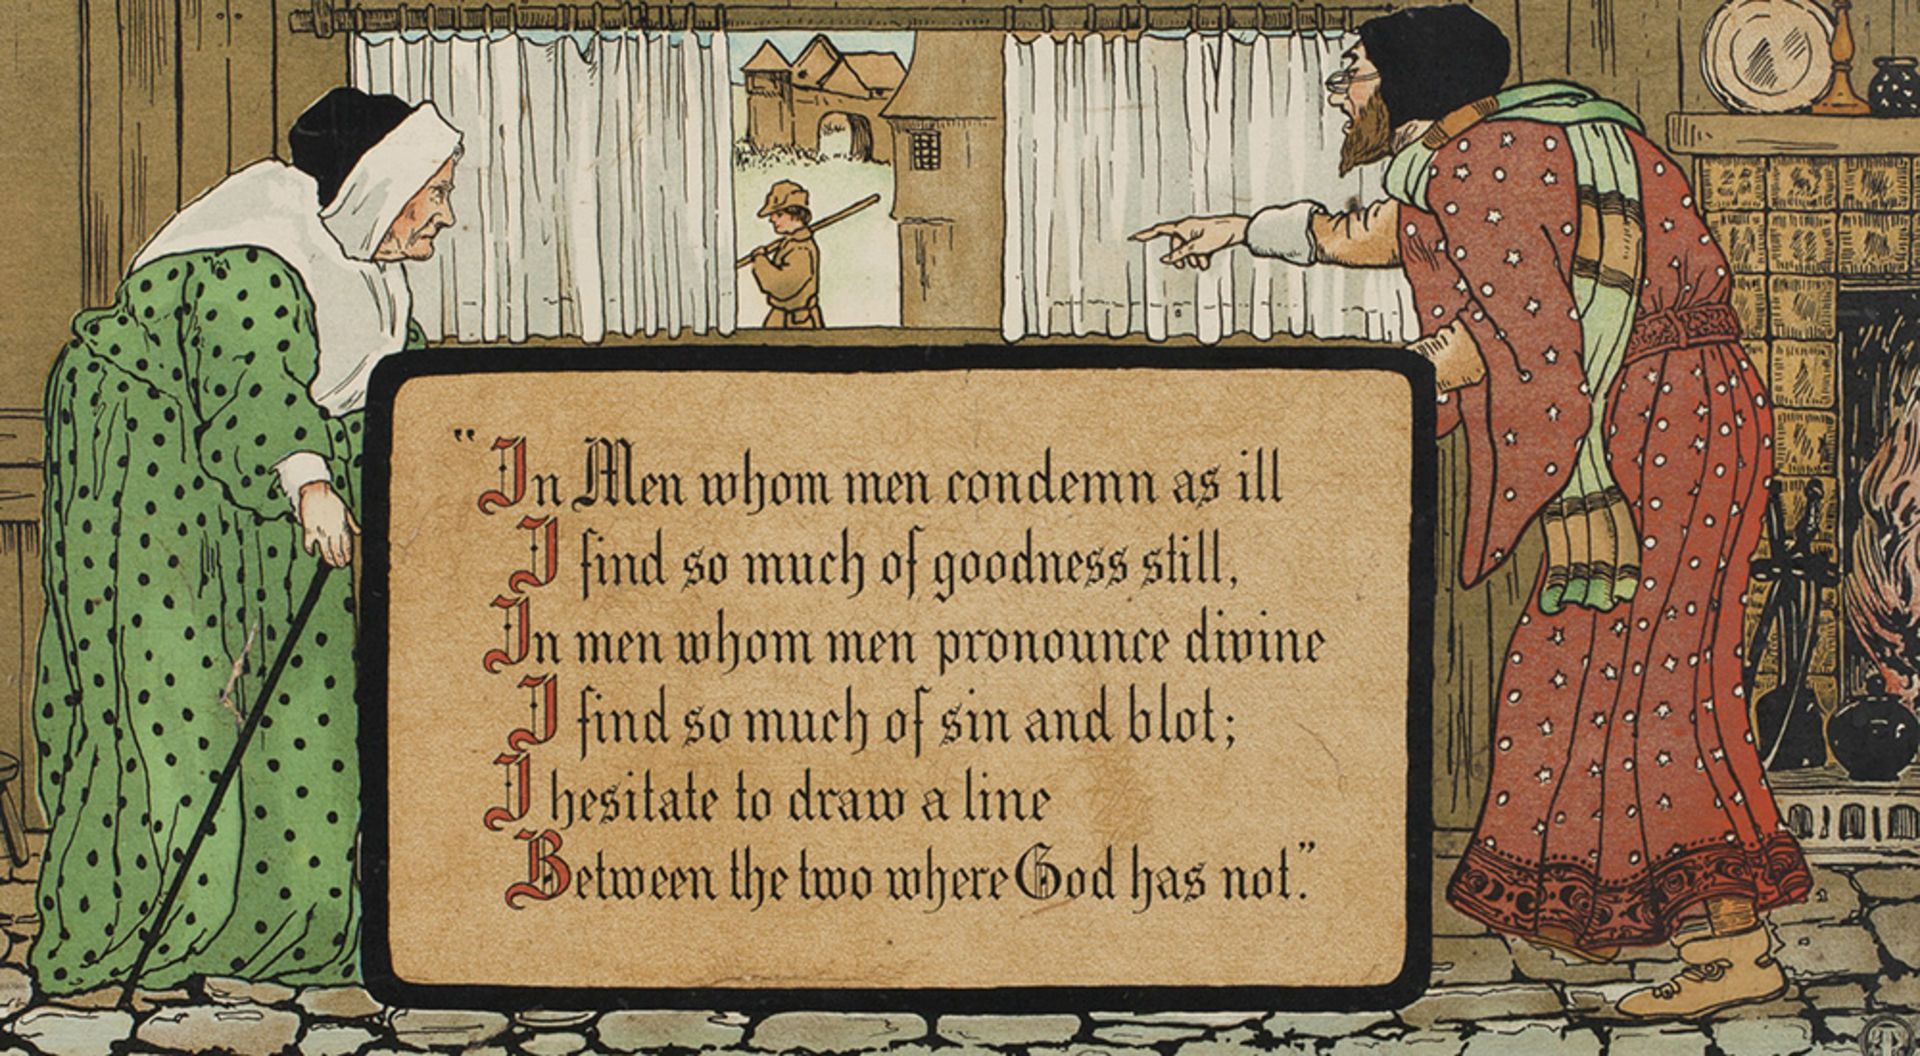 "In Men whom men condemn as ill
I find so much of goodness still,
In men whom men pronounce divine
I find so much of sin and blot;
I hesitate to draw a line
Between the two where God has not."